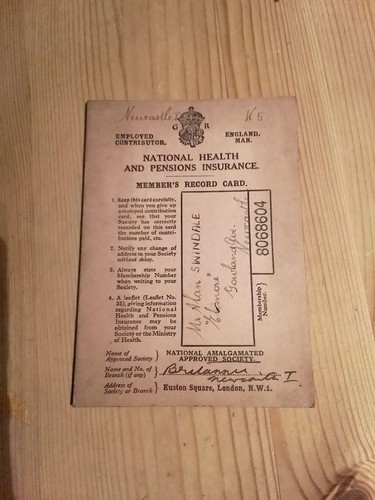 Newcastle I K5
G R
EMPLOYED ENGLAND.
CONTRIBUTOR. MAN.
NATIONAL HEALTH
AND PENSIONS INSURANCE.
MEMBER'S RECORD CARD.
1. Keep this card carefully,
and when you give up
a stamped contribution
card, see that your
Society has correctly
recorded on this card
the number of contri-
butions paid, etc.
2. Notify any change of
address to your Society
without delay.
3. Always state your
Membership Number
when writing to your
Society.
4. A leaflet (Leaflet No.
35), giving information
regarding National
Health and Pensions
Insurance may be
obtained from your
Society or the Ministry
of Health.
Mr Alan SWINDALE
"Elsmore"
Gowland Ave.
Newcastle
Membership
Number:
8068604
Name of
Approved Society
NATIONAL AMALGAMATED
APPROVED SOCIETY.
Name and No. of
Branch (if any)
Britannic
Newcastle I
Address of
Society or Branch
Euston Square, London, N.W.1.